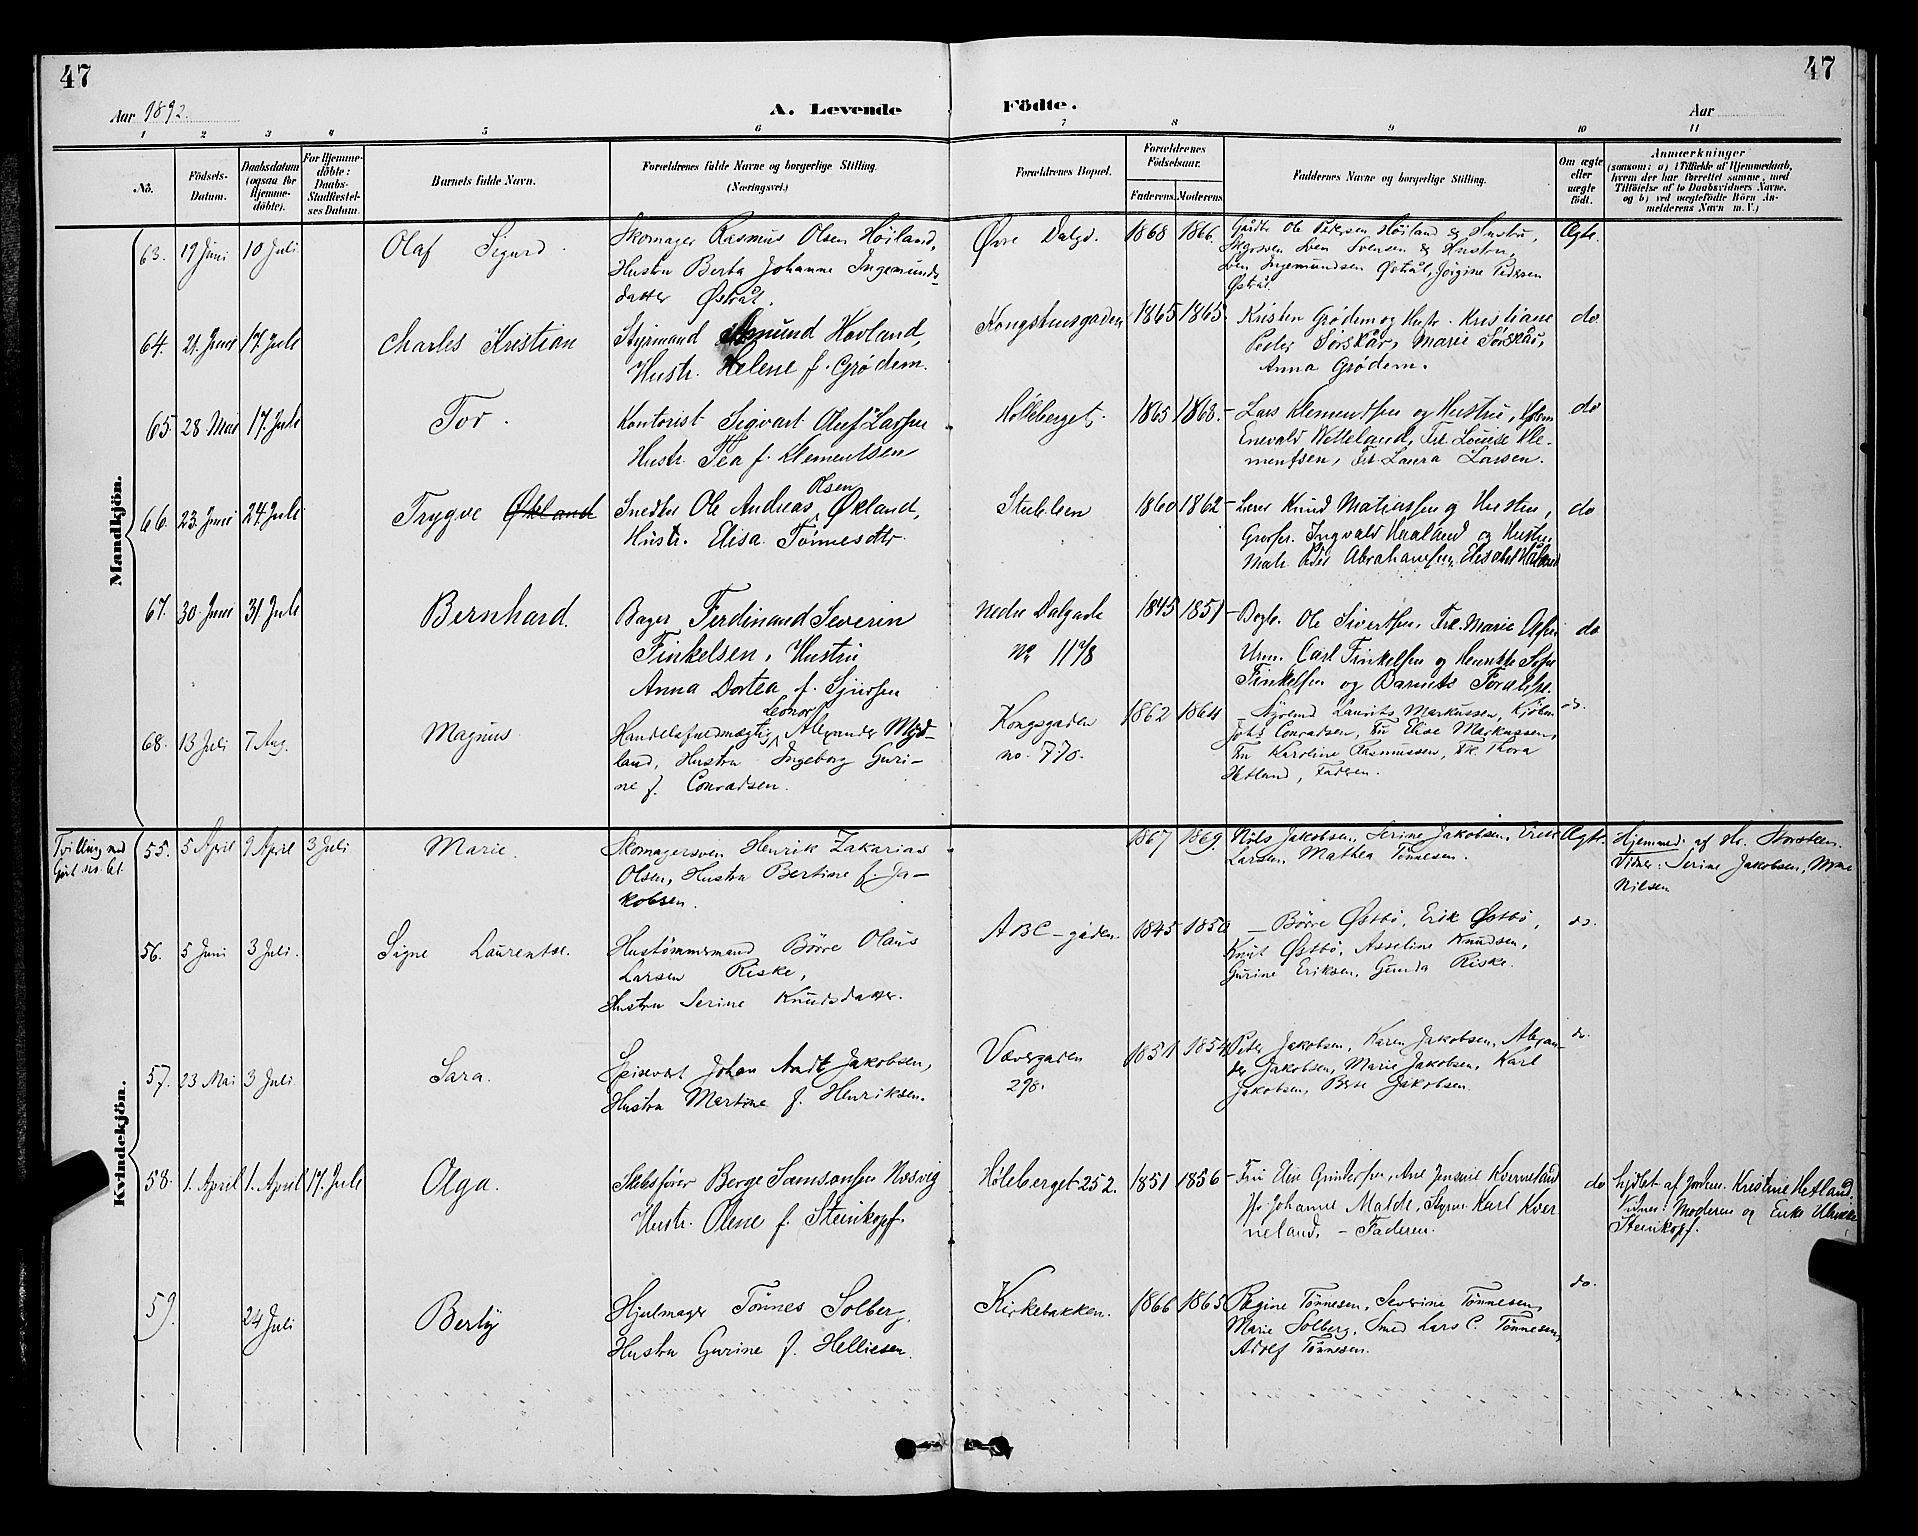 47
47
Aar 1892.
A. Levende Födte.
Aar
1 2 3 4 5 6 7 8 9 10 11
No.
Födsels-Datum.
Daabsdatum (ogsaa for Hjemme-döbte).
For Hjemme-döbte: Daabs-Stadfæstel-ses Datum.
Barnets fulde Navn.
Forældrenes fulde Navne og borgerlige Stilling. (Næringsvei.)
Forældrenes Bopæl.
Forældrenes Födselsaar.
Faderens. Moderens.
Faddernes Navne og borgerlige Stilling.
Om ægte eller uægte födt.
Anmærkninger
(saasom: a) i Tilfælde af Hjemmedaab, hvem der har forrettet samme, med Tilföielse af to Daabsvidners Navne, og b) ved uægtefödte Börn An-melderens Navn m. V.)
Mandkjön.
63. 19 Juni 10 Juli Olaf Sigurd
Skomager Rasmus Olsen Höiland,
Hustru Berta Johanne Ingemunds-
datter Østråt.
Øvre Dalgd. 1868 1866.
Gådbr Ole Pedersen Höiland & Hustru,
Sven Svensen & Hustru,
Sven Ingemundsen Østråt, Jörgine Pedersen
Østråt.
Ægte.
64. 21. Juni 17. Juli Charles Kristian
Styrmand Amund Hovland,
Hustr. Helene f. Grödem.
Kongshusgaden 1865 1865.
Kristen Grödem og Hustr. Kristiane
Peder Sörskår, Marie Sörskår,
Anna Grödem.
do
65. 28 Mai 17. Juli Tor.
Kontorist Sigvart Oluf Larsen
Hustr. Tea f. Klementsen
Höleberget. 1865 1868.
Lars Klementsen og Hustru,
Enevald Wetteland, Frk. Louise Kle-
mentsen, Frk. Laura Larsen.
do
66. 23. Juni 24 Juli Trygve Økland
Snedker Ole Andreas Olsen Økland,
Hustr. Elisa Tönnesdtr.
Stubleen 1860 1862
Lærer Knud Matiassen og Hustru,
Ingvald Haaland og Hustru,
Peder Abrahamsen, Elisabet Haaland
do
67. 30. Juni 31 Juli Bernhard.
Bager Ferdinand Severin
Finkelsen, Hustru
Anna Dortea f. Sjursen
Nedre Dalgade
No 1178
1845 1851
Ole Sivertsen, Frk. Marie
Urm. Carl Finkelsen og Henrikke
Finkelsen og Barnets Forældre.
do
68. 13 Juli 7 Aug. Magnus.
Handelsfuldmægtig Leonor Alexander Myd-
land, Hustru Ingeborg Guri-
ne f. Conradsen.
Kongsgaden
no. 770.
1862 1864
Styrmd Laurits Markussen, Kjöbm.
Johs Conradsen, Fru Elise Markussen,
Fru Karoline Rasmussen, Frk. Thora
Hetland, Faderen.
do.
Kvindekjön.
Tvilling med
55. 5 April 9 April 3 Juli Marie.
Skomagersven Henrik Zakarias
Olsen, Hustru Bertine f. Ja-
kobsen.
1867 1869.
Nils Jakobsen, Serine Jakobsen,
Larsen, Mathea Tönnesen.
Ægte.
Hjemmed. af Hr. Storsteen.
Vidner: Serine Jakobsen,
Nilsen
56. 5 Juni 3 Juli. Signe Laurentse.
Hustömmermand Börre Olaus
Larsen Riske,
Hustru Serine Knudsdatter.
ABC-gaden. 1845 1850
Börre Östbö, Erik Östbö,
Knut Östbö, Asseline Knudsen,
Gurine Eriksen, Gunda Riske.
do.
57. 23 Mai 3 Juli Sara.
Spisevært Johan Arndt Jakobsen,
Hustru Martine f. Henriksen.
Vævergaden
298.
1851 1854
Peter Jakobsen, Karen Jakobsen, Alexan-
der Jakobsen, Marie Jakobsen, Karl
Jakobsen, Berte Jakobsen.
do.
58. 1. April 1. April 17. Juli Olga.
Skibsförer Berge Samsonsen Næsvig
Hustr. Olene f. Steinkopf.
Höleberget 252. 1851 1856
Fru Elen Gundersen, Ane Kverneland
Johanne Malde, Styrm. Karl Kver-
neland, – Faderen.
do
Kristine Hetland.
Vidner: Moderen og Enke Ulrikke
Steinkopf.
59. 24 Juli Berly
Hjulmager Tönnes Solberg,
Hustru Gurine f. Helliesen.
Kirkebakken. 1866 1865
Regine Tönnesen, Severine Tönnesen,
Marie Solberg, Smed Lars C. Tönnesen,
Adolf Tönnesen.
do.